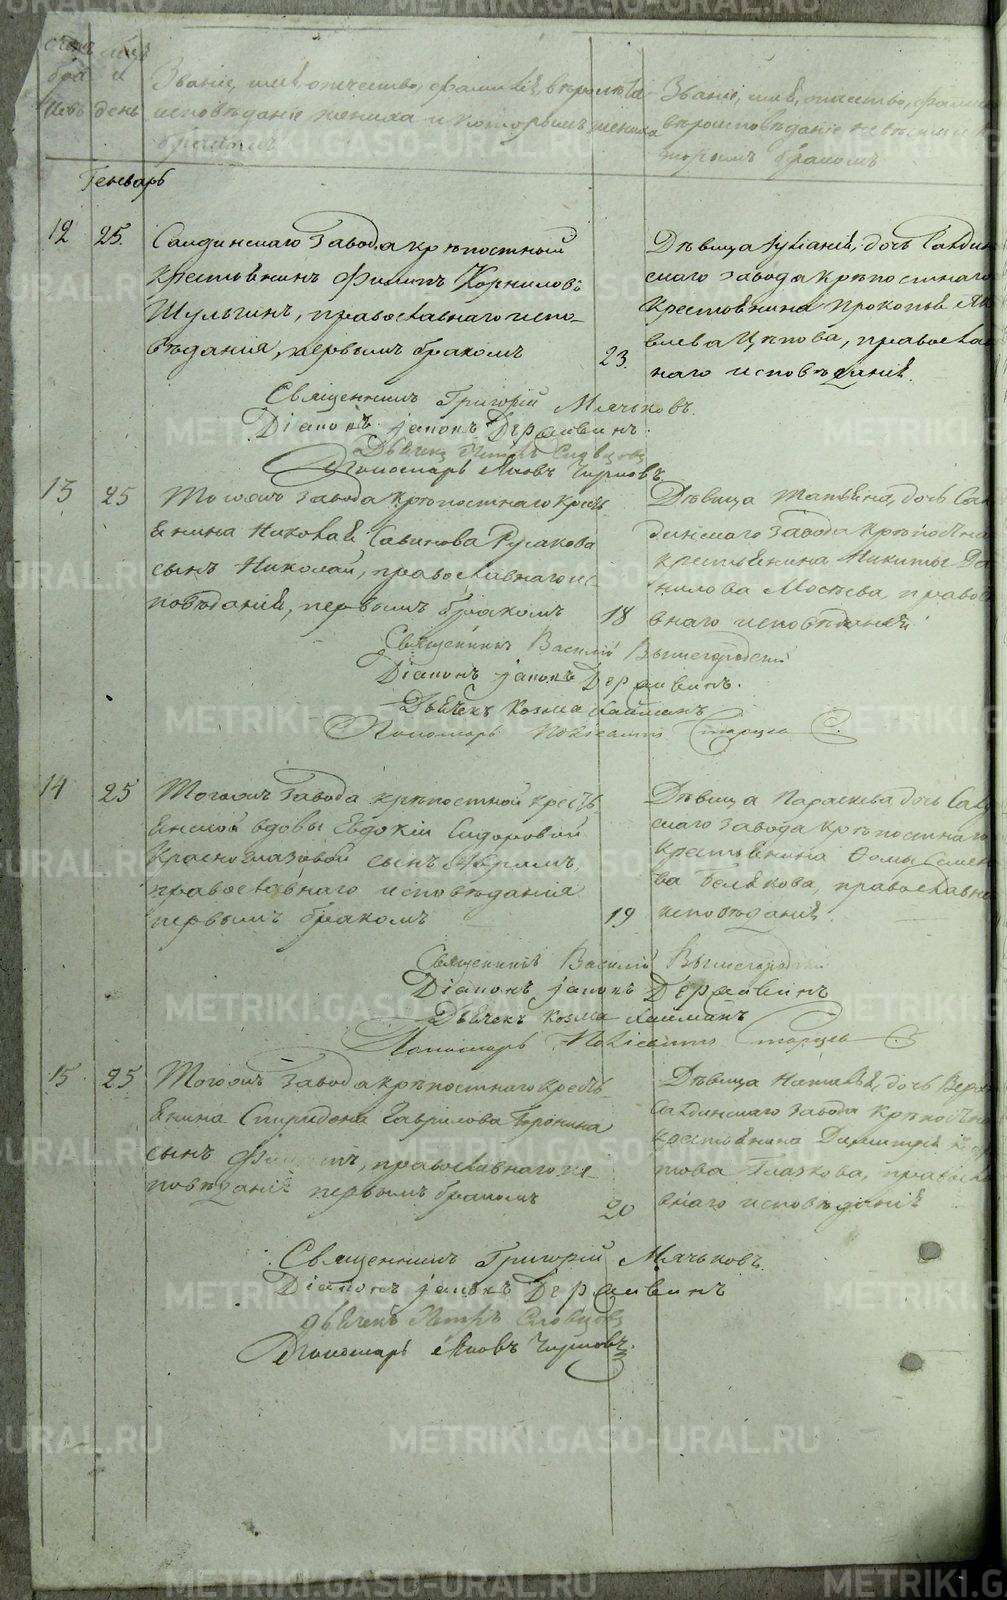 счет мцъ
бра и
ковъ день
Званіе, имя, отчество, фамилія, вѣроиспо-
исповѣданіе жениха и которымъ жениха
бракомъ
Званіе, имя, отчество, фами
вѣроисповѣданіе невѣсты и к
торымъ бракомъ
Генварь
12 25. Салдинскаго Завода крѣпостный
крестьянинъ Филипъ Корниловъ
Шульгинъ, православнаго испо-
вѣданія, первымъ бракомъ 23.
Дѣвица Іуліанія, дочь Салдин
скаго завода крѣпостнаго
крестьянина Прокопья Як
влева Цепова, православ
наго исповѣданія.
Священникъ Григорій Мячьковъ.
Діаконъ Іаковъ Державинъ.
Дьячекъ Петръ Словцовъ
Пономарь Яковъ Чирковъ
13 25 Тогожъ Завода крѣпостнаго кресть
янина Николая Савинова Русакова
сынъ Николай, православнаго ис
повѣданія, первымъ бракомъ 18
Дѣвица Татьяна, дочь Сал
динскаго завода крѣпостна
крестьянина Никиты Да
нилова Мосѣева право
внаго исповѣданія
Священникъ Василій Вышегородскій
Діаконъ Іаковъ Державинъ.
Дьячекъ Козма
Пономарь Старцевъ
14 25 Тогожъ Завода крѣпостной кресть
янской вдовы Евдокіи Сидоровой
Красноглазовой сынъ
православнаго исповѣданія
первымъ бракомъ 19
Дѣвица Параскева дочь Салд
скаго завода крѣпостнаго
крестьянина Ѳомы Семен
ва Белякова, православна
исповѣданія.
Священникъ Василій Вышегородскій
Діаконъ Іаковъ Державинъ
Дьячекъ Козма
Пономарь Старцевъ
15 25 Тогожъ Завода крѣпостнаго кресть
янина Спиридона Гаврилова Тронина
сынъ Филипъ, православнаго ис
повѣданія первымъ бракомъ 20
Дѣвица Наталья, дочь Верх
Салдинскаго завода крѣпостна
крестьянина Димитрія
това Глазкова, правосла
внаго исповѣданія
Священникъ Григорій Мячьковъ.
Діаконъ Іаковъ Державинъ
Дьячекъ Петръ Словцовъ
Пономарь Яковъ Чирковъ.
METRIKI.GASO-URAL.RU